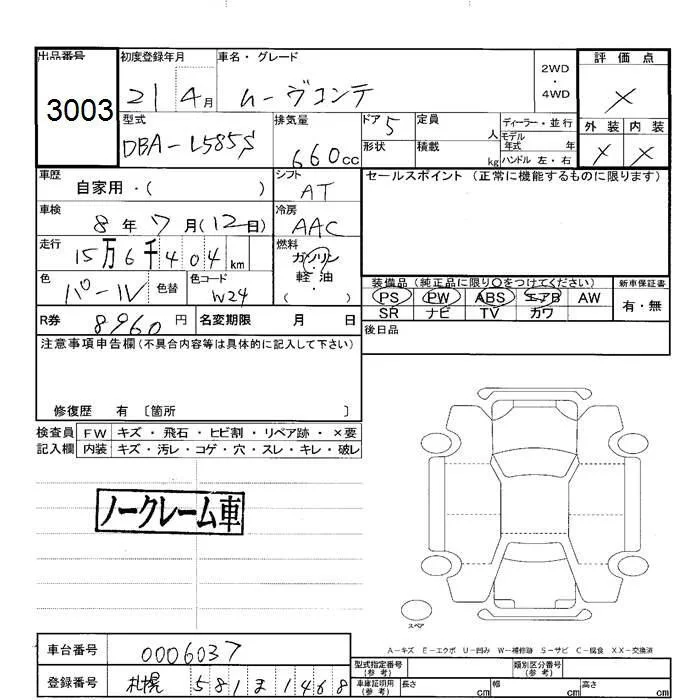 出品番号 初度登録年月 車名・グレード 2WD・4WD 評価点
3003 21 4月 ムーヴコンテ X
型式 排気量 ドア 5 定員 人 ディーラー・並行 外装 内装
DBA-L585S 660cc 形状 積載 kg モデル年式 年 ハンドル 左・右 X X
車歴 自家用・( ) シフト AT セールスポイント (正常に機能するものに限ります)
車検 8年7月(12日) 冷房 AAC
走行 15万6千404km 燃料 ガソリン・軽油・( )
色 パール 色替 色コード W24 装備品 (純正品に限り○をつけてください) 新車保証書
PS PW ABS エアB AW 有・無
SR ナビ TV カワ
R券 8960円 名変期限 月 日 後日品
注意事項申告欄(不具合内容等は具体的に記入して下さい)
修復歴 有 〔箇所 〕
検査員 FW キズ・飛石・ヒビ割・リペア跡・×要
記入欄 内装 キズ・汚レ・コゲ・穴・スレ・キレ・破レ
ノークレーム車
スペア
A-キズ E-エクボ U-凹み W-補修跡 S-サビ C-腐食 XX-交換済
車台番号 0006037 型式指定番号(参考) 類別区分番号(参考)
登録番号 札幌 581 ま 1468 車庫証明用(参考) 長さ cm 幅 cm 高さ cm